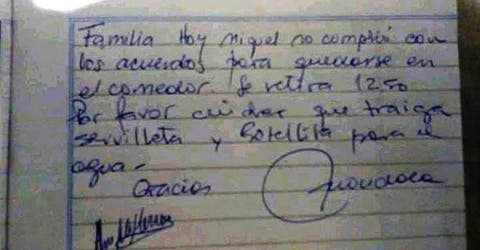 Familia Hoy Miguel no cumplió con
los acuerdos para quedarse en
el comedor. Se retira 12.50
Por favor cuidar que traiga
servilleta y botellita para el
agua-
Gracias